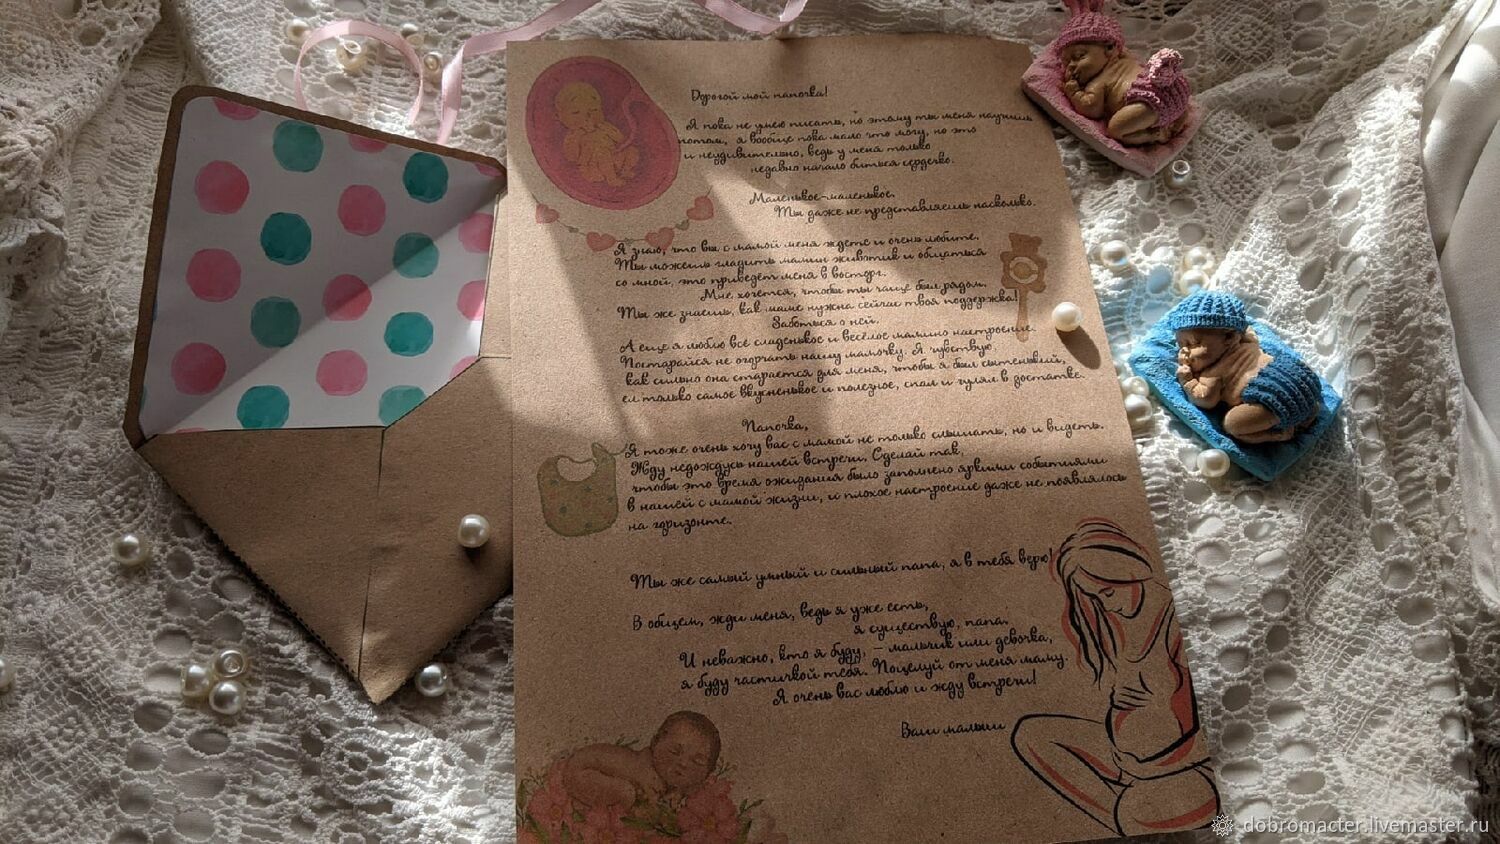 Дорогой мой папочка!
Я пока не умею писать, но этому ты меня научишь
потом, я вообще пока мало что могу, но это
и неудивительно, ведь у меня только
недавно начало биться сердечко.
Маленькое-маленькое.
Ты даже не представляешь насколько.
Я знаю, что вы с мамой меня ждете и очень любите.
Ты можешь гладить мамин животик и общаться
со мной, это приведёт меня в восторг.
Мне хочется, чтобы ты чаще был рядом.
Ты же знаешь, как маме нужна сейчас твоя поддержка!
Заботься о ней.
А еще я люблю всё сладенькое и весёлое мамино настроение.
Постарайся не огорчать нашу мамочку. Я чувствую,
как сильно она старается для меня, чтобы я был сытенький,
ел только самое вкусненькое и полезное, спал и гулял в достатке.
Папочка,
Я тоже очень хочу вас с мамой не только слышать, но и видеть.
Жду недождусь нашей встречи. Сделай так,
чтобы это время ожидания было заполнено яркими событиями
в нашей с мамой жизни, и плохое настроение даже не появлялось
на горизонте.
Ты же самый умный и сильный папа, я в тебя верю!
В общем, жди меня, ведь я уже есть,
я существую, папа.
И неважно, кто я буду, – мальчик или девочка,
я буду частичкой тебя. Поцелуй от меня маму.
Я очень вас люблю и жду встречи!
Ваш малыш
dobromacter.livemaster.ru